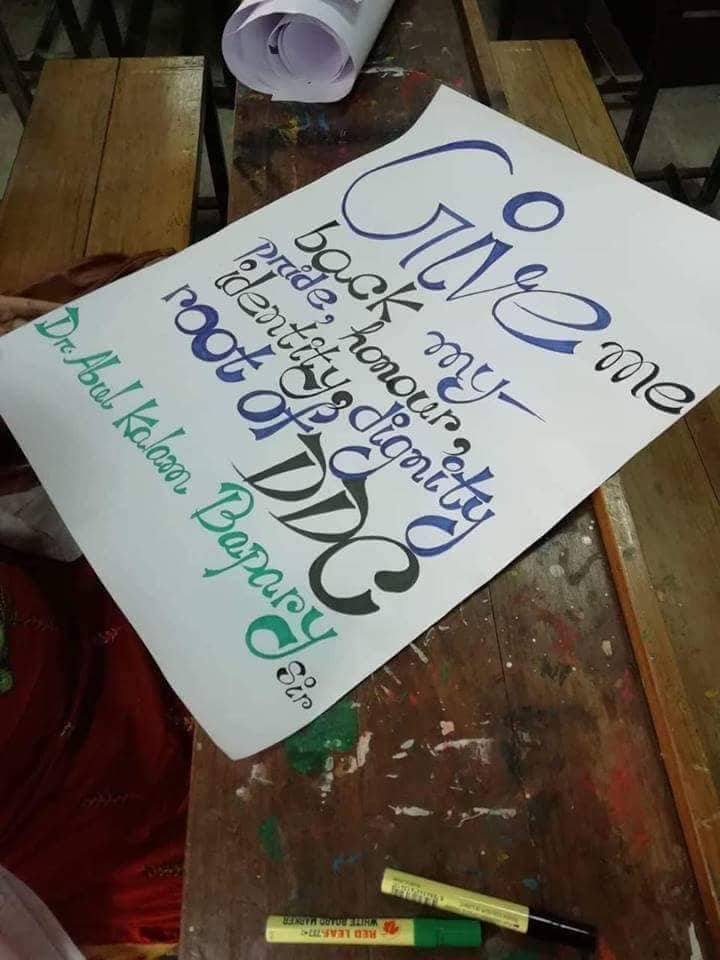 Give me
back my-
pride, honour,
identity, dignity
root of DDC
Dr. Abul Kalam Bapary
Sir
RED LEAF
WHITE BOARD MARKER